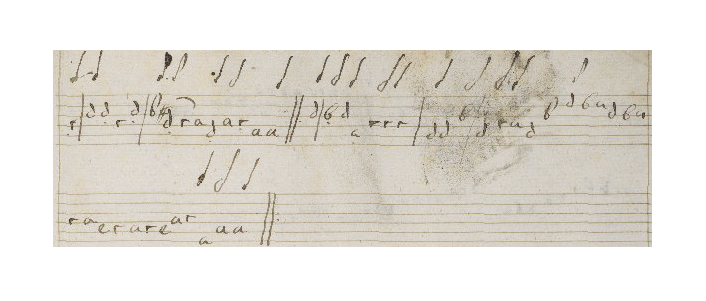 r d d r d b d r a d a r a a d b d a r r r d d b d r a d b d b a d b a
r a e r a r e a r a a a